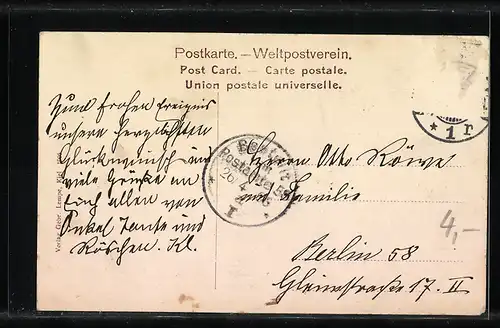 Postkarte. – Weltpostverein.
Post Card. – Carte postale.
Union postale universelle.
Zum frohen Ereignis
unsere herzlichsten
Glückwünsche und
viele Grüße an
Euch allen von
Onkel Tante und
Röschen. Kl.
Herrn Otto Röwe
und Familie
Berlin 58
Gleimstraße 17. II
4,-
* 1 r